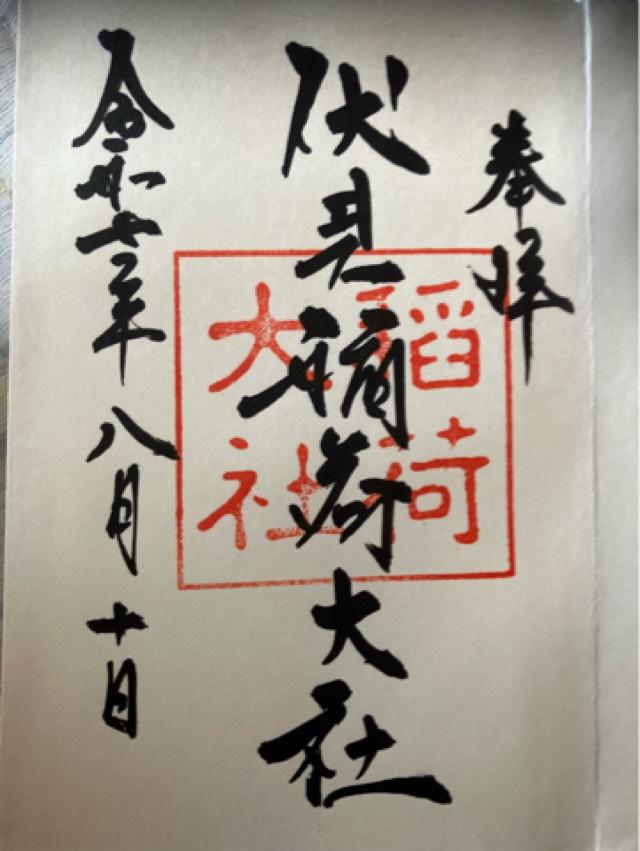 奉拝
伏見稲荷大社
稲荷
大社
令和七年八月十日